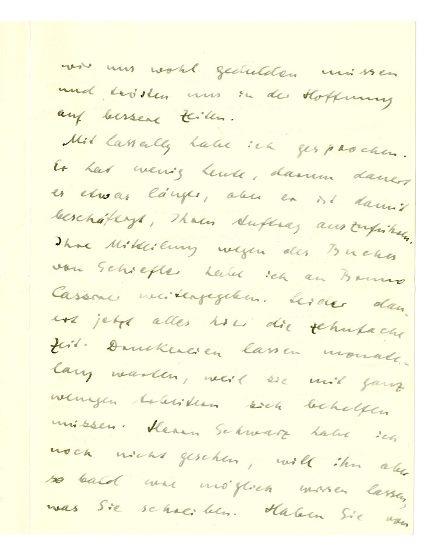 wir uns wohl gedulden müssen
und trösten uns in der Hoffnung
auf bessere Zeiten.
Mit Lassally habe ich gesprochen.
Er hat wenig Leute, darum dauert
es etwas länger, aber er ist damit
beschäftigt, Ihren Auftrag auszuführen.
Ihre Mitteilung wegen des Buches
von Schiefler habe ich an Bruno
Cassirer weitergegeben. Leider dau-
ert jetzt alles hier die zehnfache
Zeit. Druckereien lassen monate-
lang warten, weil sie mit ganz
wenigen Arbeitern sich behelfen
müssen. Herrn Schwarz habe ich
noch nicht gesehen, will ihn aber
so bald wie möglich wissen lassen,
was Sie schreiben. Haben Sie von